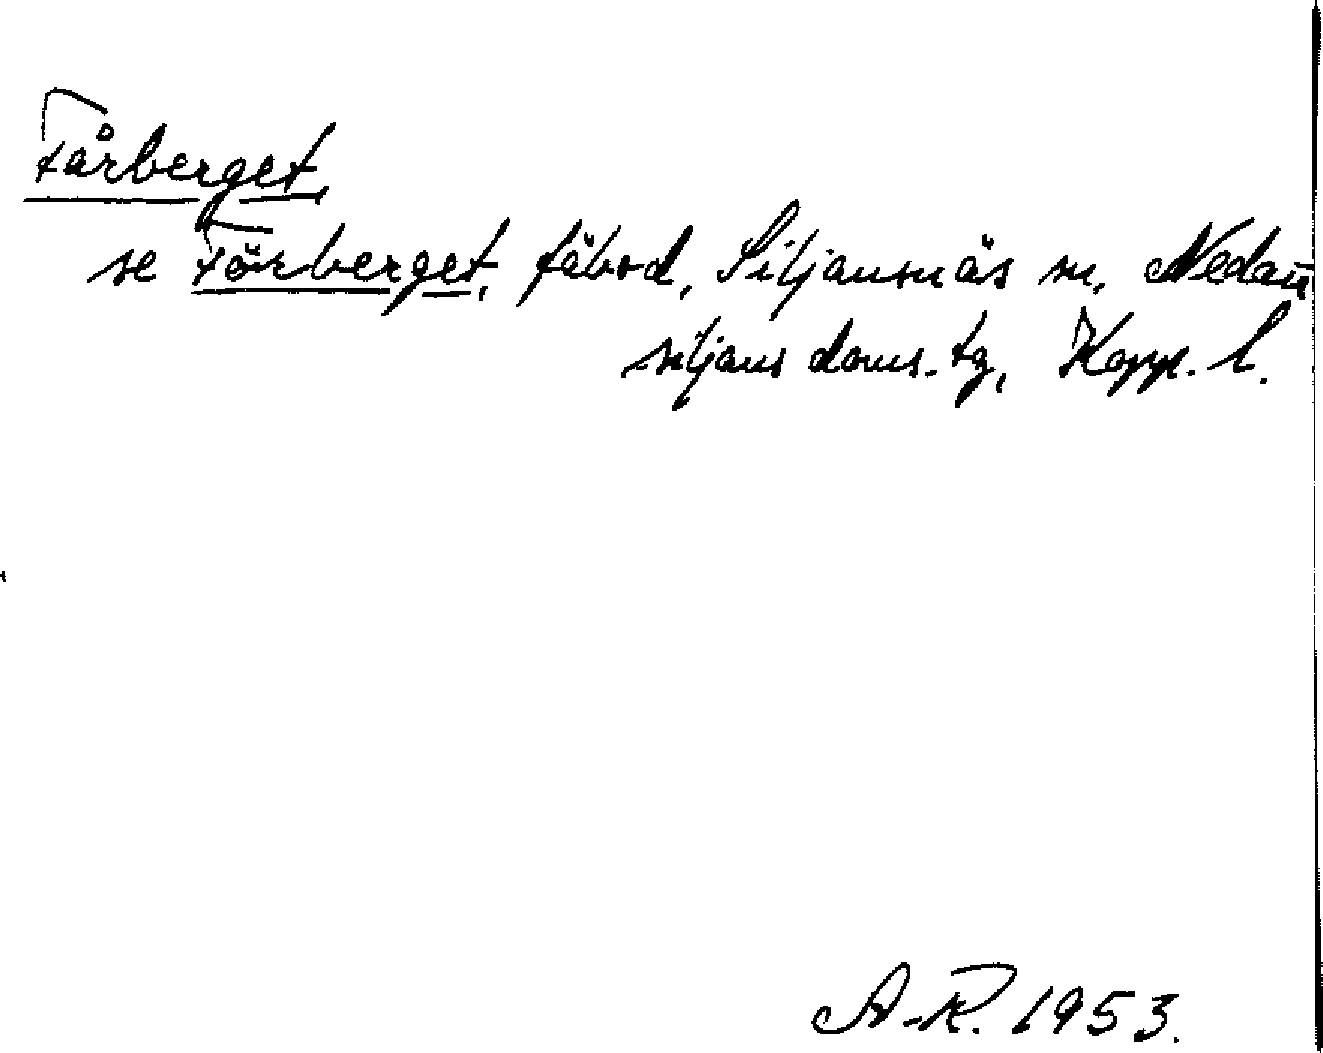 Fårberget,
seFörberget, fäbod, Siljansnäs sn, Nedan-
siljans doms. tg, Kopp. l.
A.-R. 1953.